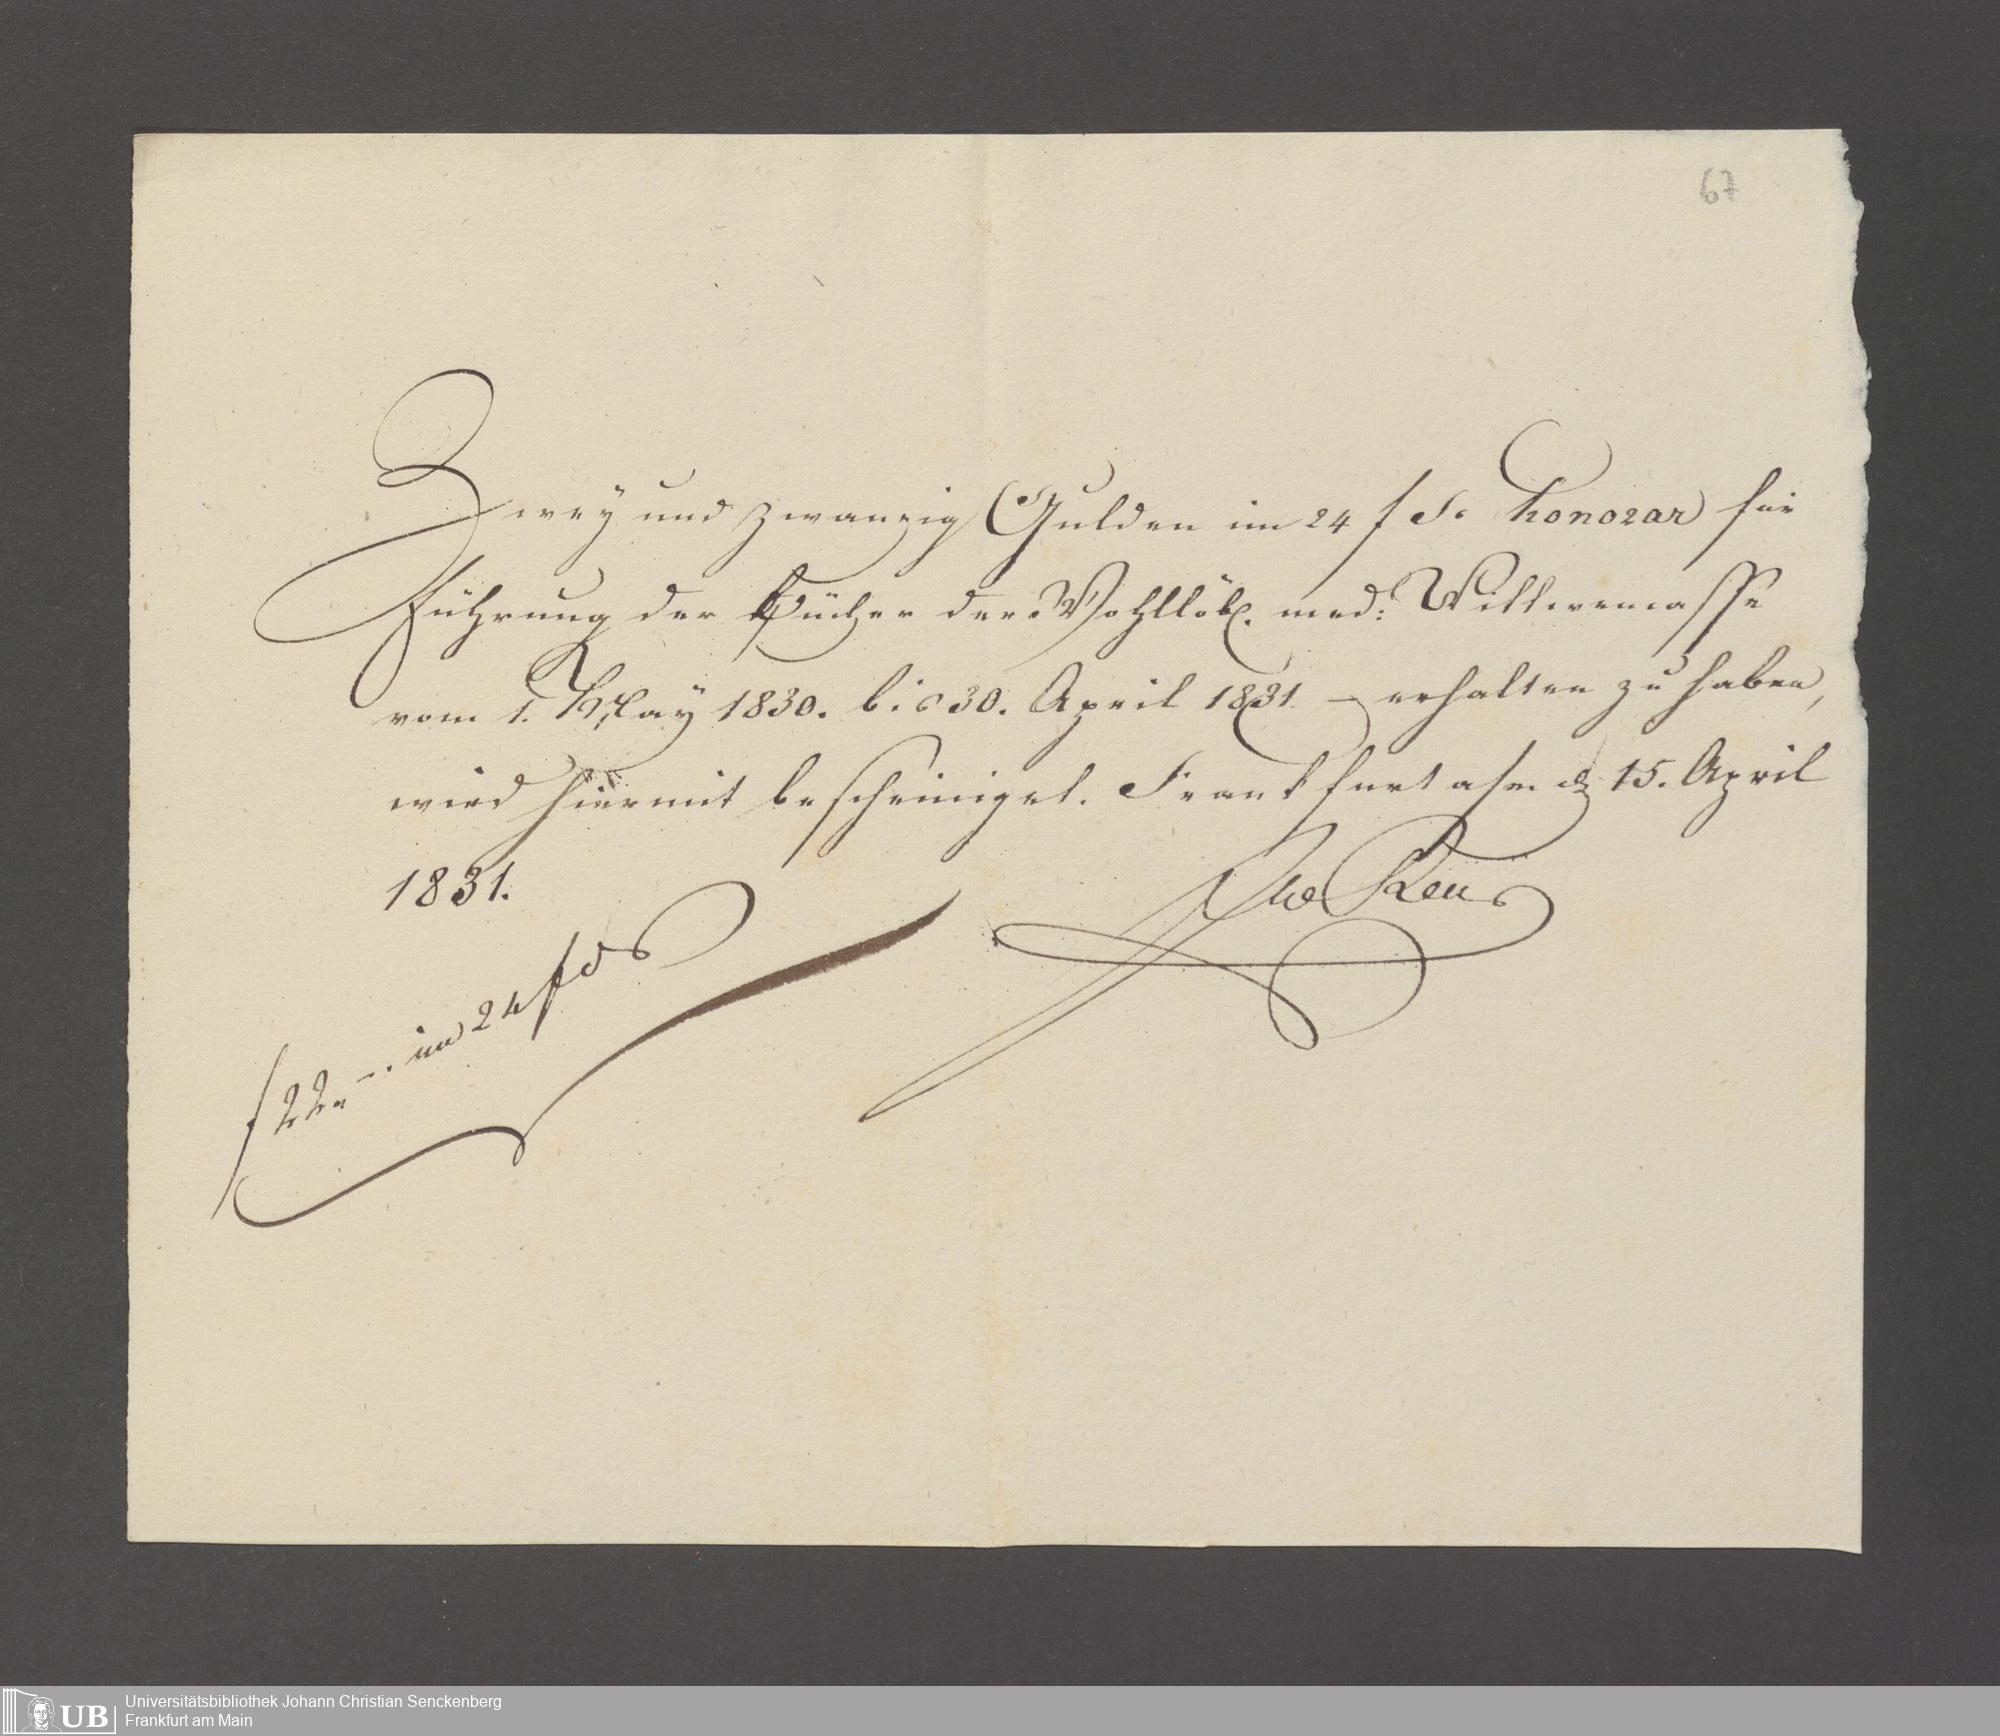 67
Zwey und zwanzig Gulden im 24 f Honorar für
Führung der Bücher der Wohllöbl. med: Wittwencasse
vom 1. May 1830. bis 30. April 1831 – erhalten zu haben,
wird hiermit bescheiniget. Frankfurt a/m d 15. April
1831.
Rau
f 22 „ –. im 24 f
UB
Universitätsbibliothek Johann Christian Senckenberg
Frankfurt am Main